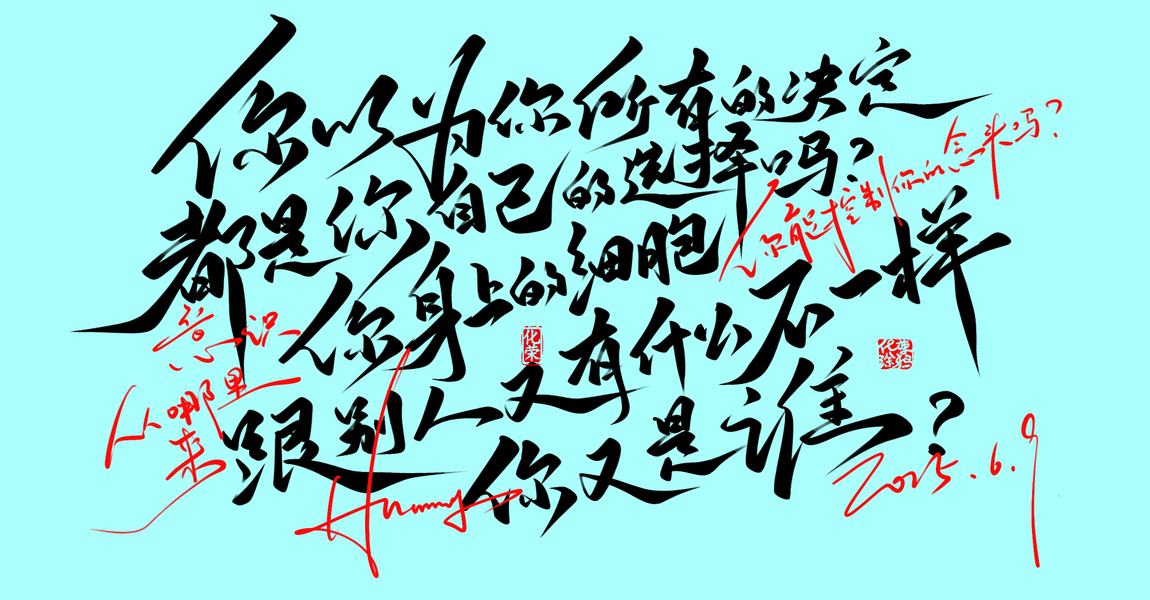 你以为你所有的决定
都是你自己的选择吗?
你身上的细胞
跟别人又有什么不一样
你又是谁?
你能控制你的念头吗?
意识
从哪里
来
Huang
2025.6.9
化荣